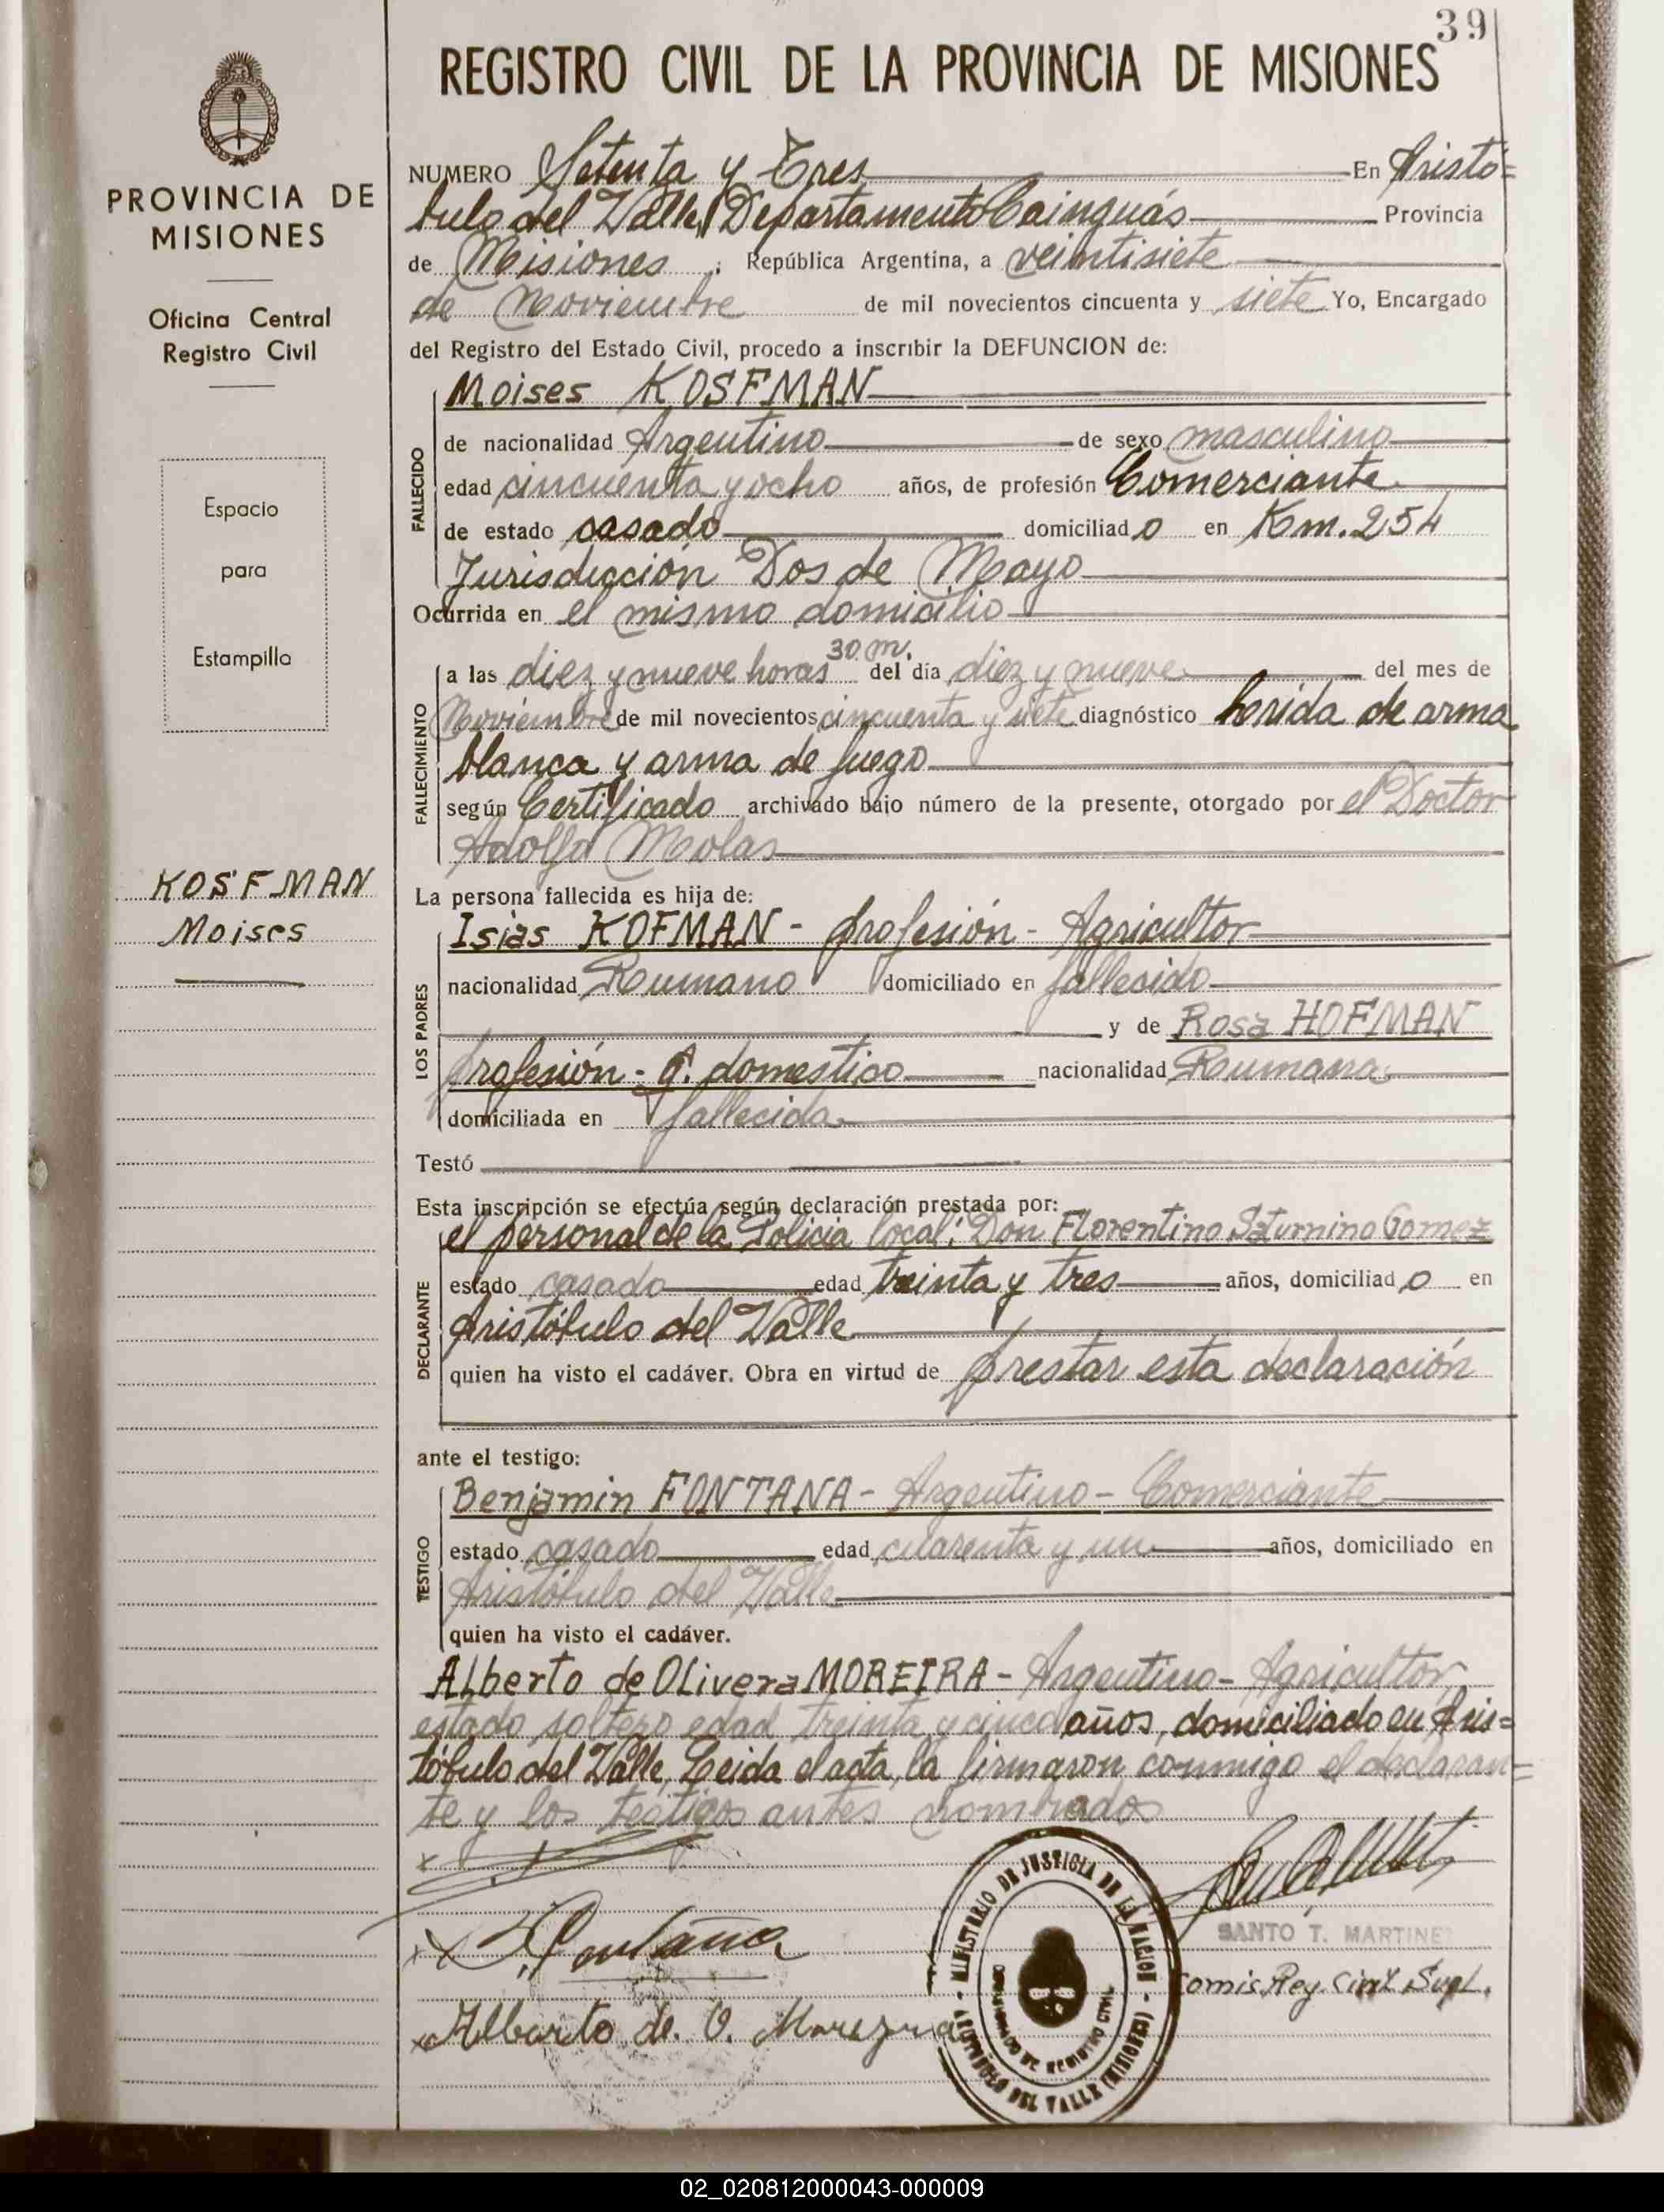 39
REGISTRO CIVIL DE LA PROVINCIA DE MISIONES
PROVINCIA DE
MISIONES
Oficina Central
Registro Civil
Espacio
para
Estampilla
KOSFMAN
Moises
NUMERO Setenta y Tres En Aristó=
bulo del Valle, Departamento Cainguás Provincia
de Misiones, República Argentina, a veintisiete
de Noviembre de mil novecientos cincuenta y siete Yo, Encargado
del Registro del Estado Civil, procedo a inscribir la DEFUNCION de:
FALLECIDO
Moises KOSFMAN
de nacionalidad Argentino de sexo masculino
edad cincuenta y ocho años, de profesión Comerciante
de estado casado domiciliado en Km. 254
Jurisdicción Dos de Mayo
Ocurrida en el mismo domicilio
FALLECIMIENTO
a las diez y nueve horas 30 m. del día diez y nueve del mes de
Noviembre de mil novecientos cincuenta y siete diagnóstico herida de arma
blanca y arma de fuego
según Certificado archivado bajo número de la presente, otorgado por el Doctor
Adolfo Molas
La persona fallecida es hija de:
LOS PADRES
Isias KOFMAN - profesión - Agricultor
nacionalidad Rumano domiciliado en fallecido
y de Rosa HOFMAN
profesión - q. domestico nacionalidad Rumana
domiciliada en fallecida
Testó
Esta inscripción se efectúa según declaración prestada por:
DECLARANTE
el personal de la Policia local: Don Florentino Saturnino Gomez
estado casado edad treinta y tres años, domiciliado en
Aristóbulo del Valle
quien ha visto el cadáver. Obra en virtud de prestar esta declaración
ante el testigo:
TESTIGO
Benjamin FONTANA - Argentino - Comerciante
estado casado edad cuarenta y un años, domiciliado en
Aristóbulo del Valle
quien ha visto el cadáver.
Alberto de Olivera MOREIRA - Argentino - Agricultor,
estado soltero edad treinta y cinco años, domiciliado en Aris=
tóbulo del Valle, Leida el acta, la firmaron conmigo el declaran=
te y los testigos antes nombrados
Alberto de O. Morezra
MINISTERIO DE JUSTICIA DE LA NACION
REGISTRO CIVIL
ARISTOBULO DEL VALLE (MISIONES)
SANTO T. MARTINEZ
Comis. Reg. Civil Supl.
02_020812000043-000009